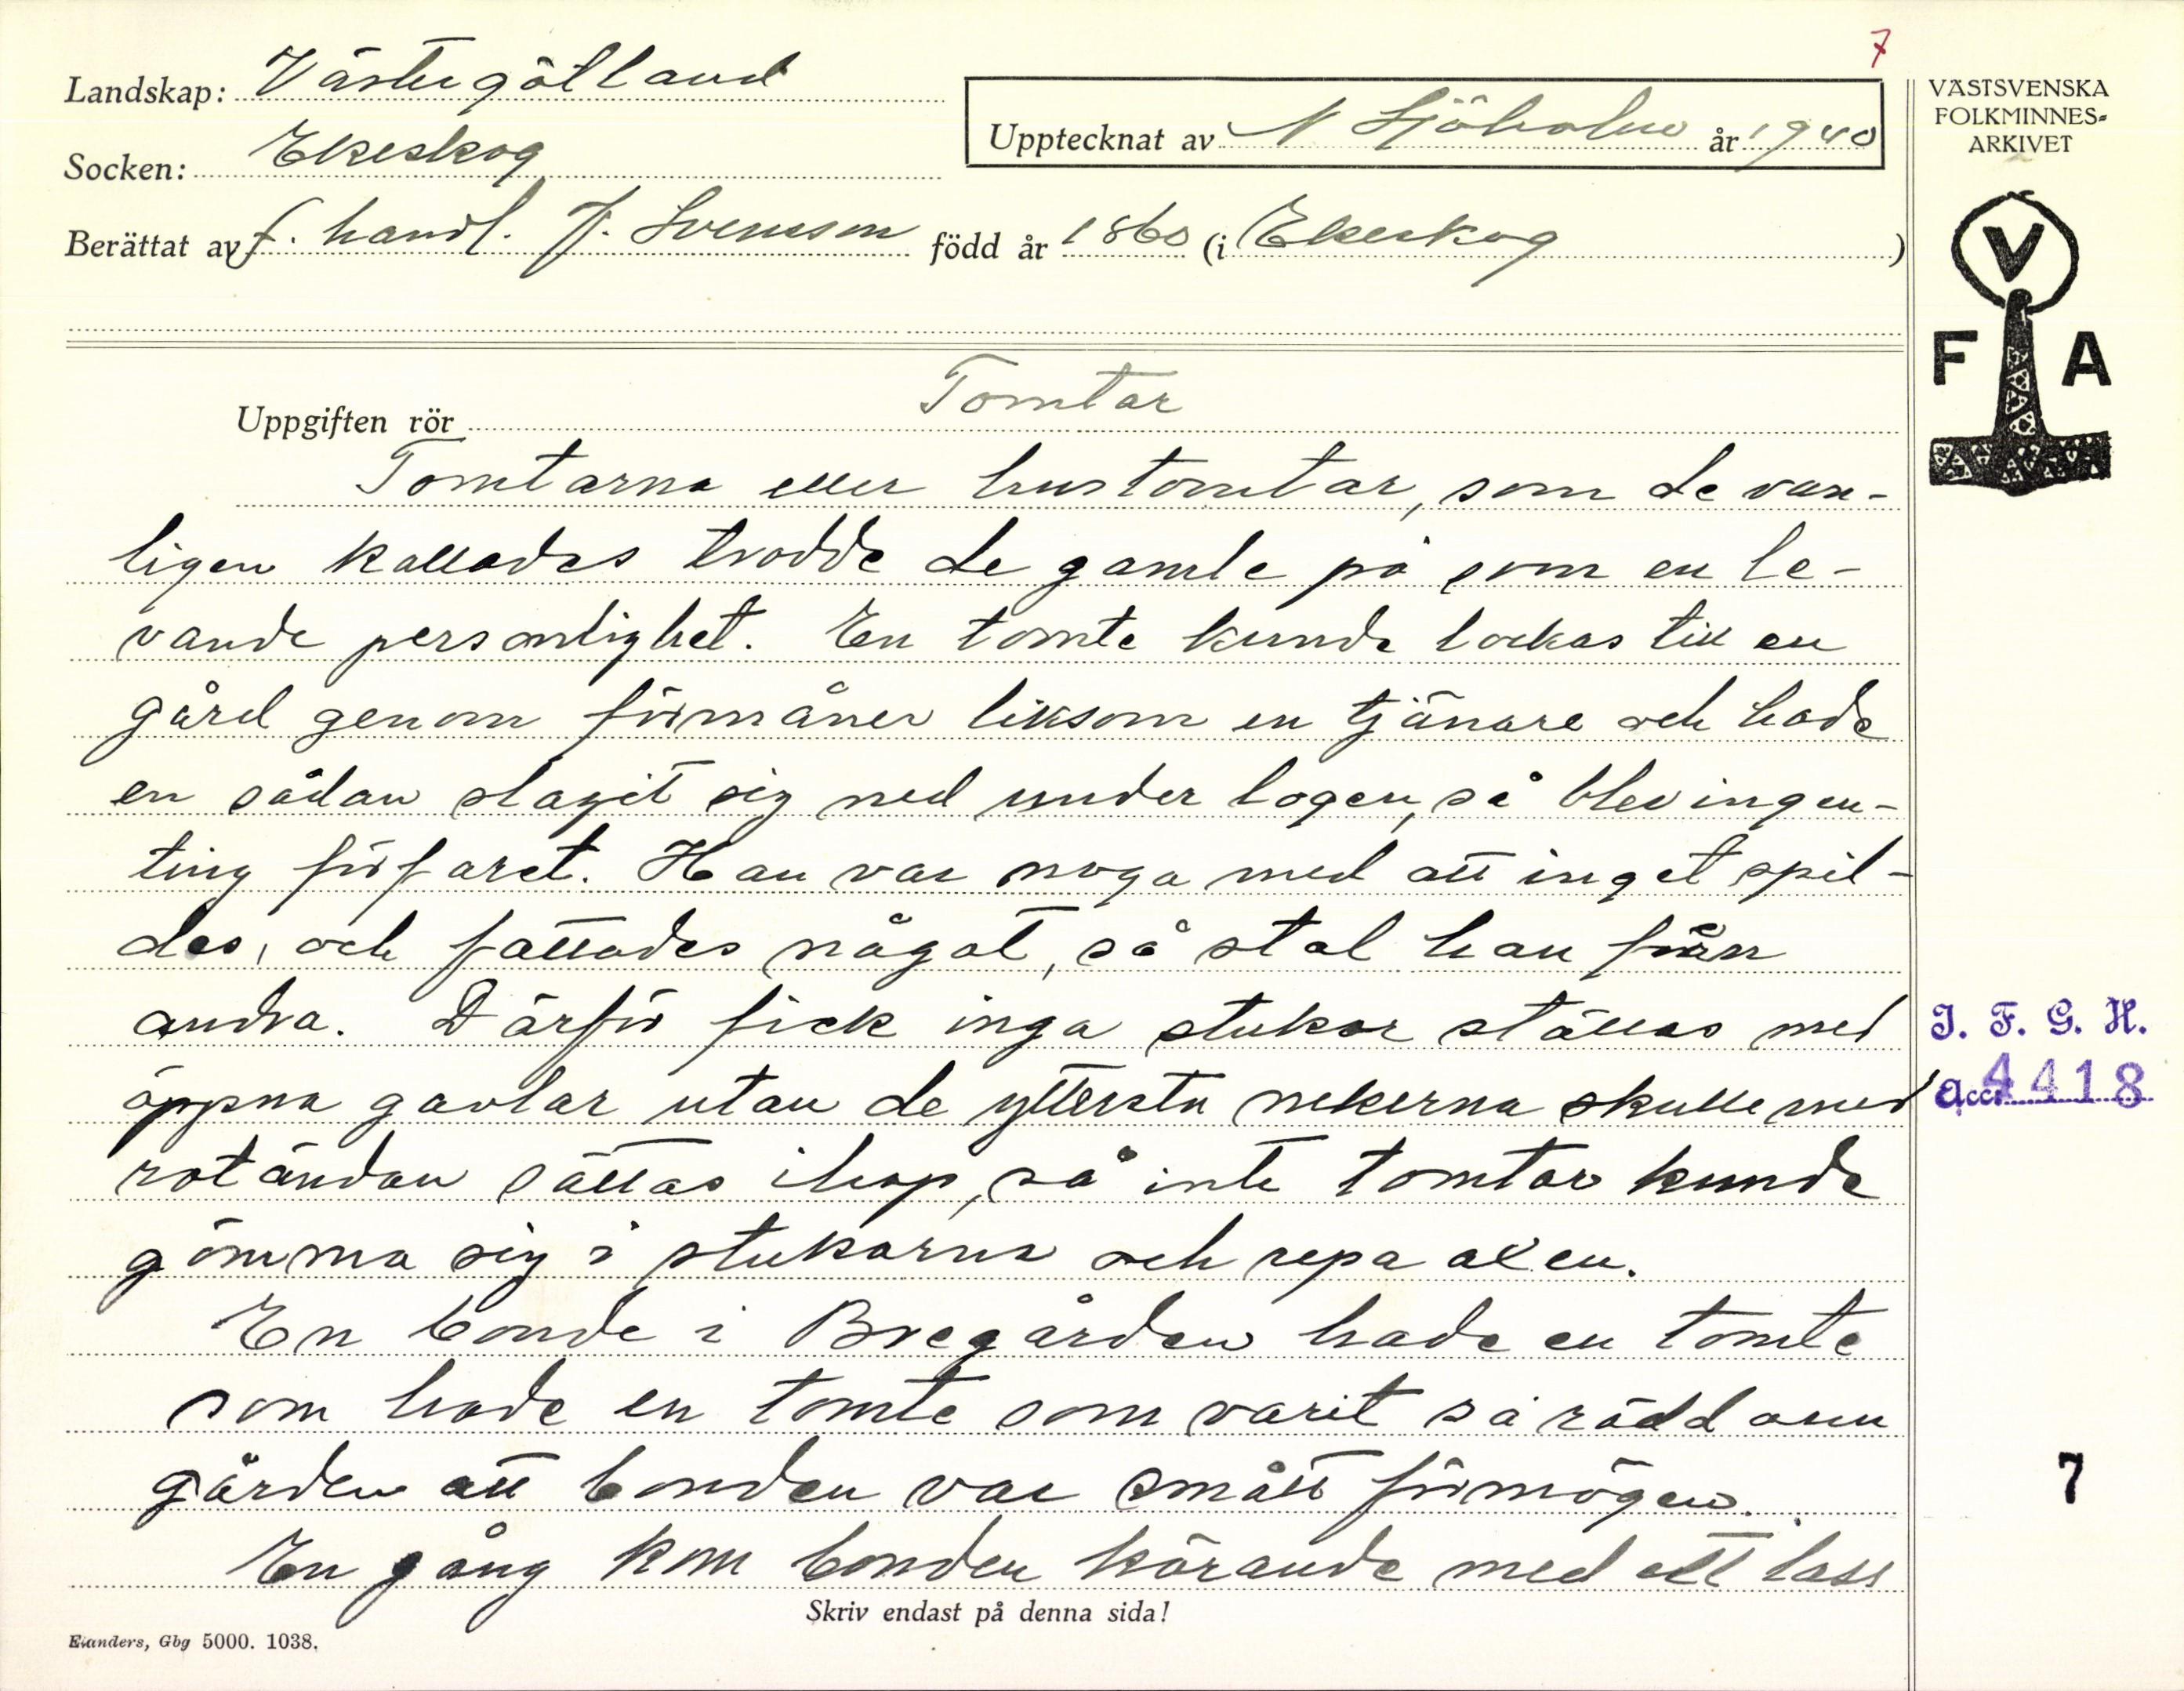 7
Landskap: Västergötland
Socken: Ekeskog
Upptecknat av N Sjöholm år 1940
Berättat av f. handl. J. Svensson född år 1860 (i Ekeskog)
VÄSTSVENSKA
FOLKMINNES=
ARKIVET
V
F A
Uppgiften rör Tomtar
Tomtarna eller hustomtar, som de van-
ligen kallades trodde de gamle på som en le-
vande personlighet. En tomte kunde lockas till en
gård genom förmåner liksom en tjänare och hade
en sådan slagit sig ned under logen, så blev ingen-
ting förfaret. Han var noga med att inget spil-
des, och fattades något, så stal han från
andra. Därför fick inga stukar ställas med
öppna gavlar utan de yttersta nekerna skulle med
rotändan sättas ihop, så inte tomtar kunde
gömma sig i stukarna och repa axen.
En bonde i Bregården hade en tomte
som hade en tomte som varit så rädd om
gården att bonden var smått förmögen.
En gång kom bonden körande med ett lass
I. F. G. H.
Acc. 4418
7
Skriv endast på denna sida!
Elanders, Gbg 5000. 1038.